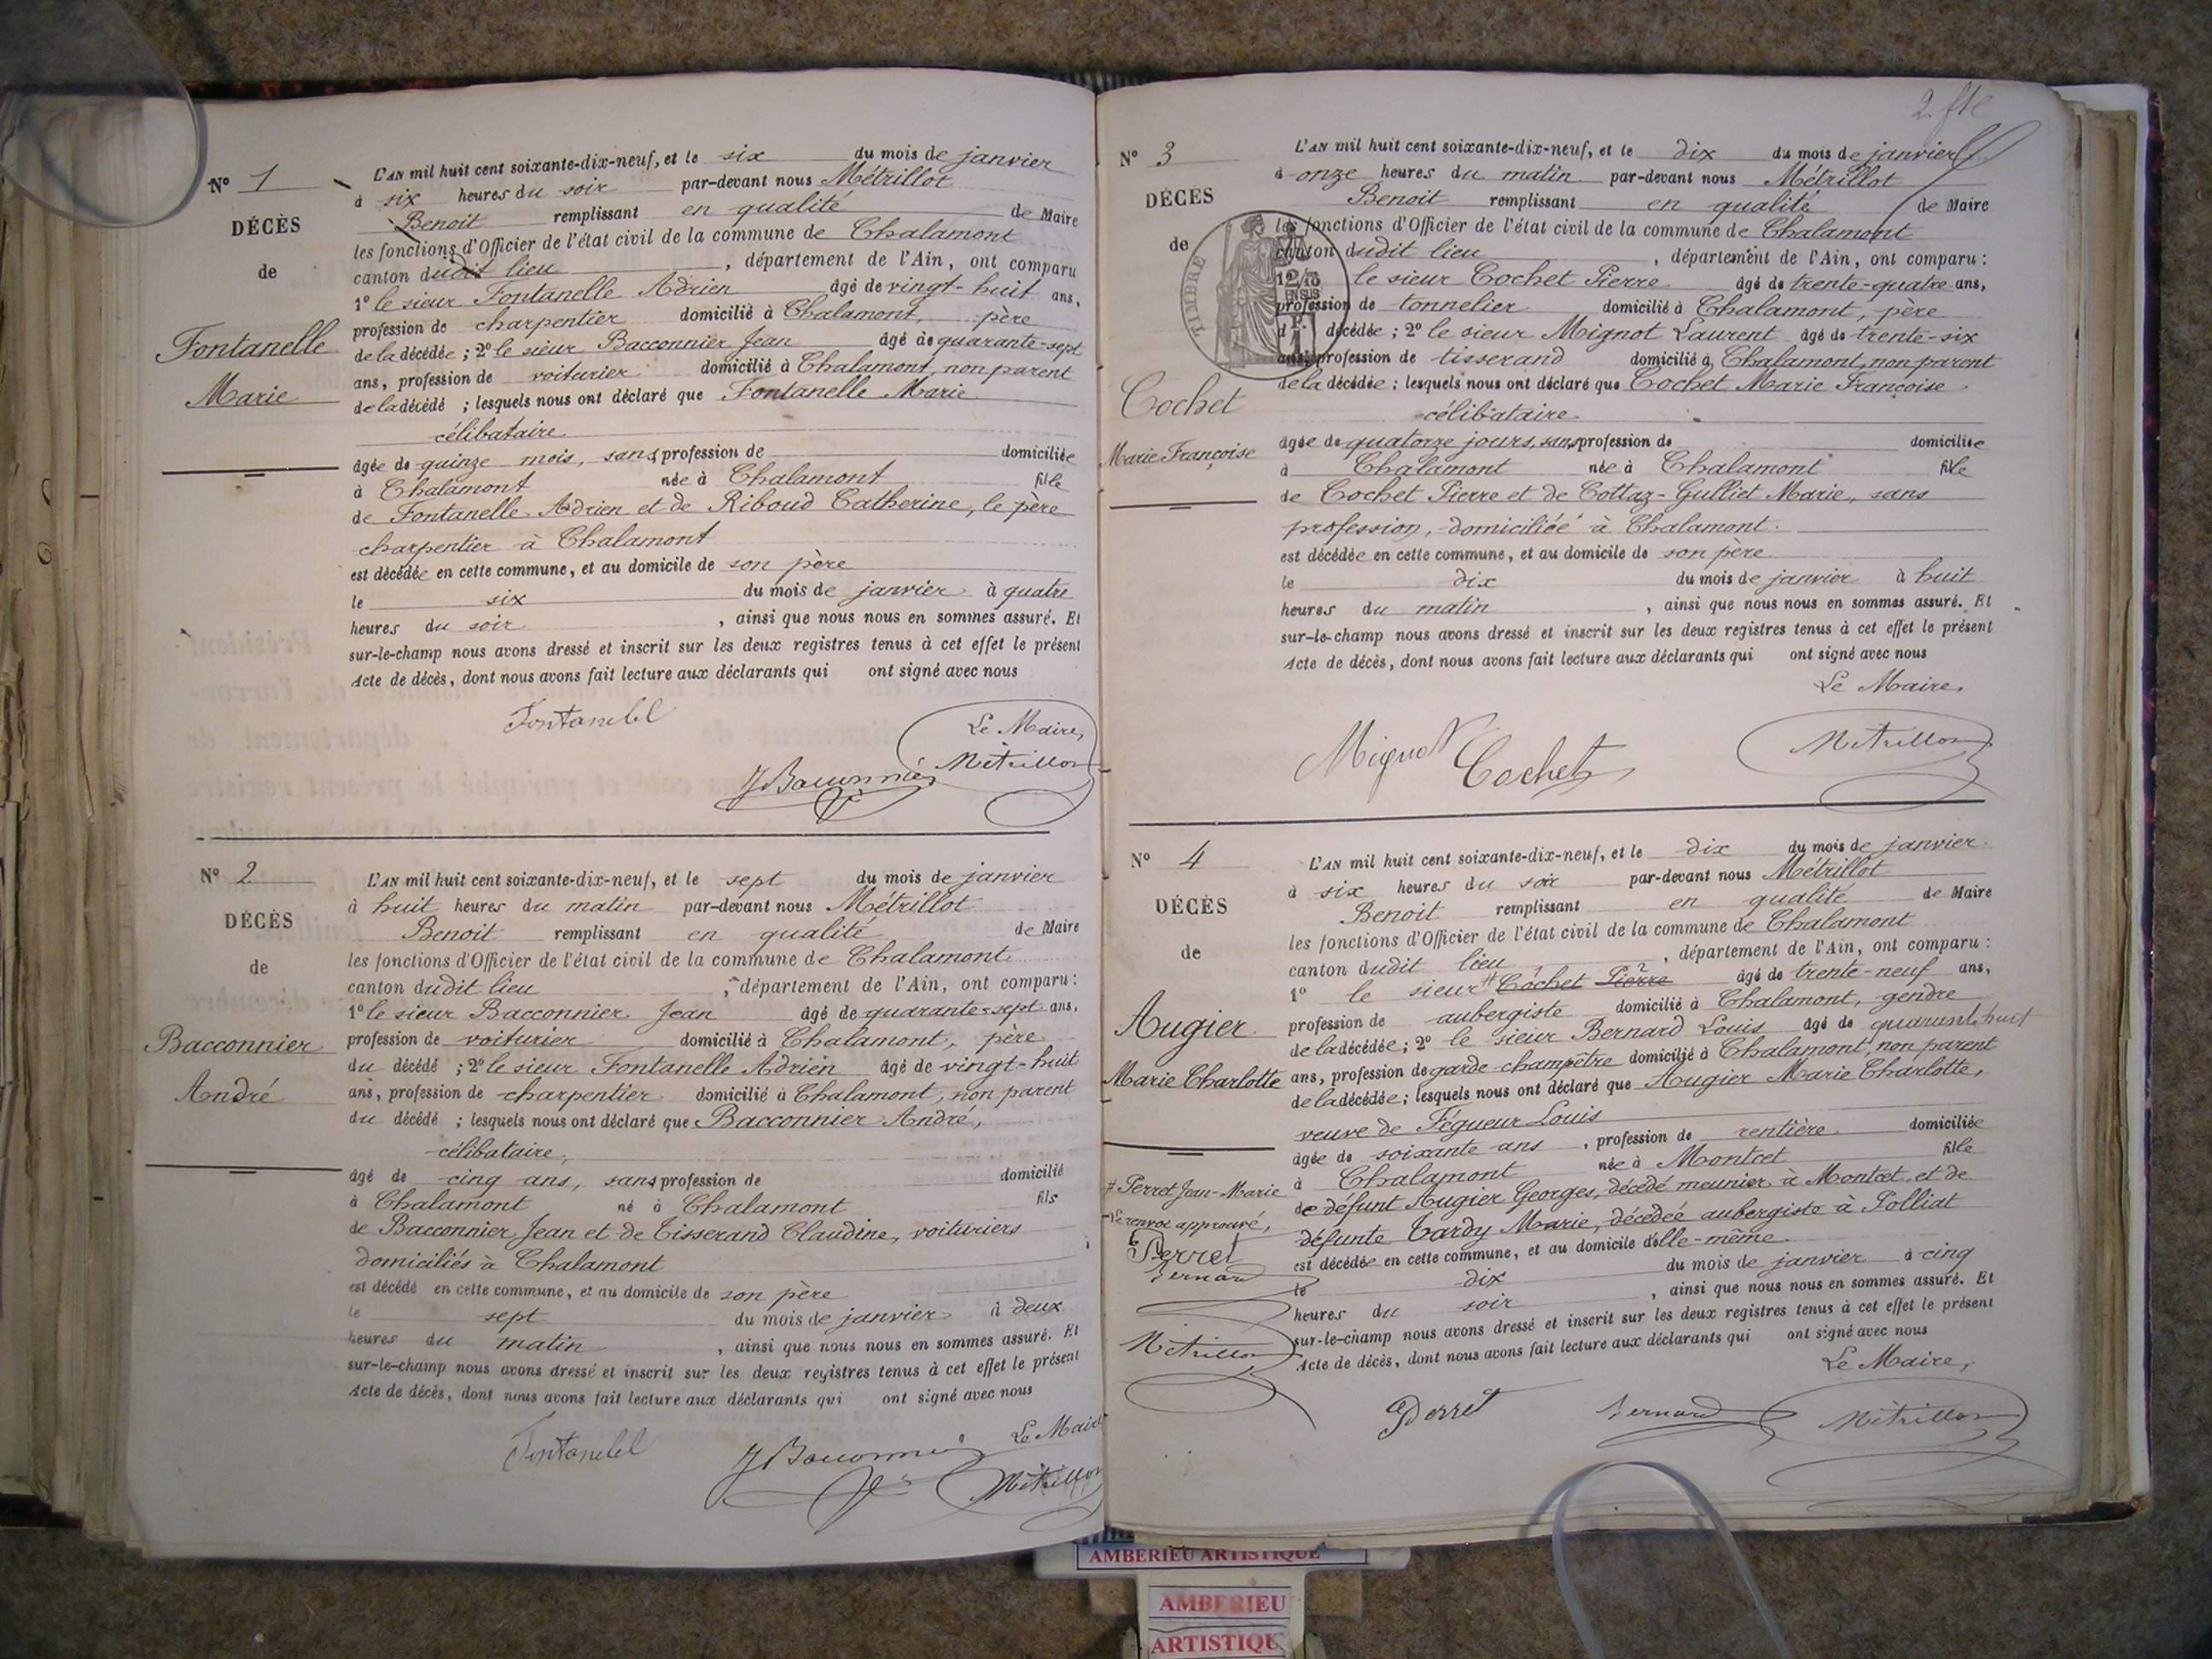 N° 1
DÉCÈS
de
Fontanelle
Marie
L'AN mil huit cent soixante-dix-neuf, et le six du mois de janvier
à six heures du soir par-devant nous Métrillot
Benoit remplissant en qualité de Maire
les fonctions d'Officier de l'état civil de la commune de Chalamont
canton dudit lieu, département de l'Ain, ont comparu
1° le sieur Fontanelle Adrien âgé de vingt-huit ans,
profession de charpentier domicilié à Chalamont, père
de la décédée ; 2° le sieur Bacconnier Jean âgé de quarante-sept
ans, profession de voiturier domicilié à Chalamont, non parent
de la décédé ; lesquels nous ont déclaré que Fontanelle Marie
célibataire
âgée de quinze mois, sans profession de domiciliée
à Chalamont née à Chalamont fille
de Fontanelle Adrien et de Riboud Catherine, le père
charpentier à Chalamont
est décédée en cette commune, et au domicile de son père
le six du mois de janvier à quatre
heures du soir, ainsi que nous nous en sommes assuré. Et
sur-le-champ nous avons dressé et inscrit sur les deux registres tenus à cet effet le présent
Acte de décès, dont nous avons fait lecture aux déclarants qui ont signé avec nous
Fontanel
Le Maire,
J Baconnier
Métrillot
N° 2
DÉCÈS
de
Bacconnier
André
L'AN mil huit cent soixante-dix-neuf, et le sept du mois de janvier
à huit heures du matin par-devant nous Métrillot
Benoit remplissant en qualité de Maire
les fonctions d'Officier de l'état civil de la commune de Chalamont
canton dudit lieu, département de l'Ain, ont comparu :
1° le sieur Bacconnier Jean âgé de quarante-sept ans,
profession de voiturier domicilié à Chalamont, père
du décédé ; 2° le sieur Fontanelle Adrien âgé de vingt-huit
ans, profession de charpentier domicilié à Chalamont, non parent
du décédé ; lesquels nous ont déclaré que Bacconnier André,
célibataire,
âgé de cinq ans, sans profession de domicilié
à Chalamont né à Chalamont fils
de Bacconnier Jean et de Tisserand Claudine, voituriers
domiciliés à Chalamont
est décédé en cette commune, et au domicile de son père
le sept du mois de janvier à deux
heures du matin, ainsi que nous nous en sommes assuré. Et
sur-le-champ nous avons dressé et inscrit sur les deux registres tenus à cet effet le présent
Acte de décès, dont nous avons fait lecture aux déclarants qui ont signé avec nous
Fontanel
J Baconnier
Le Maire
Métrillot
N° 3
DÉCÈS
de
TIMBRE
Cochet
Marie Françoise
L'AN mil huit cent soixante-dix-neuf, et le dix du mois de janvier
à onze heures du matin par-devant nous Métrillot
Benoit remplissant en qualité de Maire
les fonctions d'Officier de l'état civil de la commune de Chalamont
canton dudit lieu, département de l'Ain, ont comparu :
le sieur Cochet Pierre âgé de trente-quatre ans,
profession de tonnelier domicilié à Chalamont, père
décédée ; 2° le sieur Mignot Laurent âgé de trente-six
ans, profession de tisserand domicilié à Chalamont, non parent
de la décédée ; lesquels nous ont déclaré que Cochet Marie Françoise
célibataire
âgée de quatorze jours, sans profession de domiciliée
à Chalamont née à Chalamont fille
de Cochet Pierre et de Cottaz-Gulliet Marie, sans
profession, domiciliée à Chalamont.
est décédée en cette commune, et au domicile de son père
le dix du mois de janvier à huit
heures du matin, ainsi que nous nous en sommes assuré. Et
sur-le-champ nous avons dressé et inscrit sur les deux registres tenus à cet effet le présent
Acte de décès, dont nous avons fait lecture aux déclarants qui ont signé avec nous
Le Maire,
Mignot Cochet Métrillot
N° 4
DÉCÈS
de
Augier
Marie Charlotte
# Perret Jean-Marie
Le renvoi approuvé,
Perret
Bernard
Métrillot
L'AN mil huit cent soixante-dix-neuf, et le dix du mois de janvier
à six heures du soir par-devant nous Métrillot
Benoit remplissant en qualité de Maire
les fonctions d'Officier de l'état civil de la commune de Chalamont
canton dudit lieu, département de l'Ain, ont comparu :
1° le sieur # Cochet Pierre âgé de trente-neuf ans,
profession de aubergiste domicilié à Chalamont, gendre
de la décédée ; 2° le sieur Bernard Louis âgé de quarante huit
ans, profession de garde-champêtre domicilié à Chalamont, non parent
de la décédée ; lesquels nous ont déclaré que Augier Marie Charlotte,
veuve de Fégueur Louis
âgée de soixante ans, profession de rentière domiciliée
à Chalamont née à Montcet fille
de défunt Augier Georges, décédé meunier à Montcet, et de
défunte Tardy Marie, décédée aubergiste à Polliat
est décédée en cette commune, et au domicile d'elle-même
le dix du mois de janvier à cinq
heures du soir, ainsi que nous nous en sommes assuré. Et
sur-le-champ nous avons dressé et inscrit sur les deux registres tenus à cet effet le présent
Acte de décès, dont nous avons fait lecture aux déclarants qui ont signé avec nous
Le Maire,
Perret Bernard Métrillot
AMBERIEU ARTISTIQUE
AMBERIEU
ARTISTIQUE